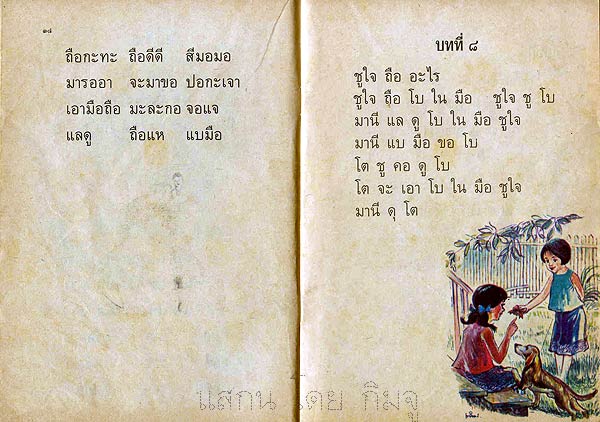 ๑๘
ถือกะทะ ถือดีดี สีมอมอ
มารออา จะมาขอ ปอกะเจา
เอามือถือ มะละกอ จอแจ
แลดู ถือแห แบมือ
บทที่ ๘
ชูใจ ถือ อะไร
ชูใจ ถือ โบ ใน มือ ชูใจ ชู โบ
มานี แล ดู โบ ใน มือ ชูใจ
มานี แบ มือ ขอ โบ
โต ชู คอ ดู โบ
โต จะ เอา โบ ใน มือ ชูใจ
มานี ดุ โต
แสกน โดย กิมจู